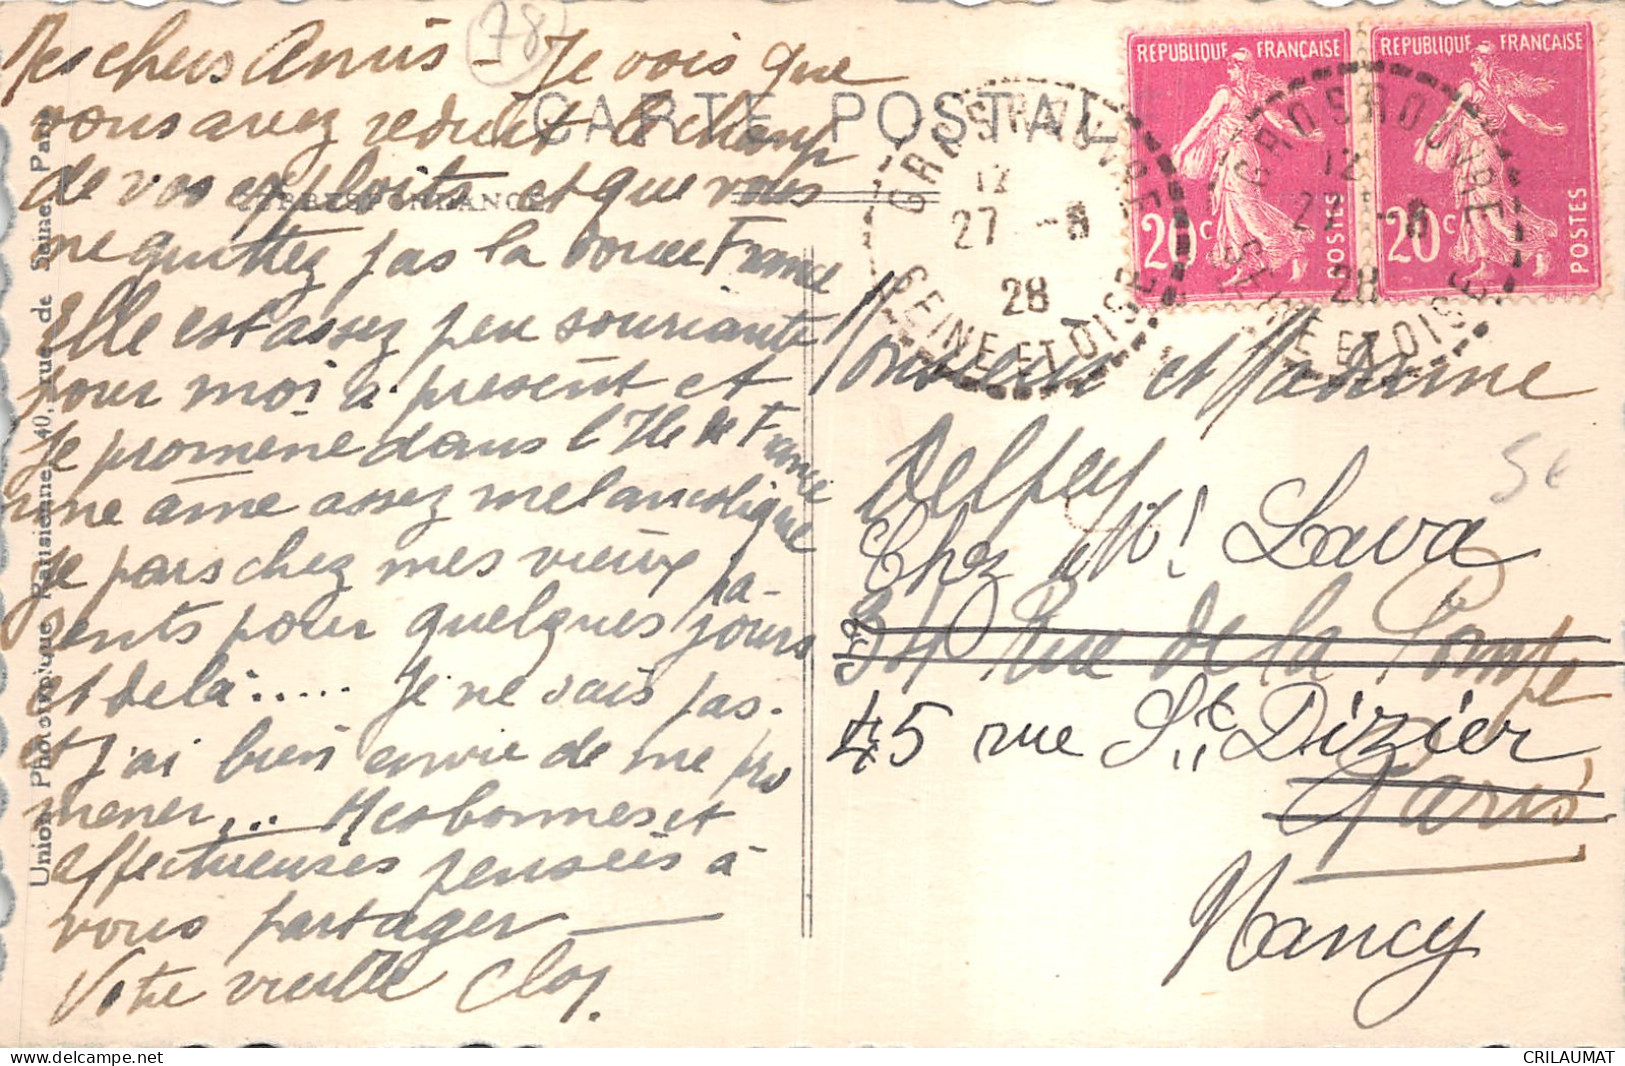 Mes chers Amis – Je vois que
vous avez reduit le champ
de vos exploits et que vous
ne quittez pas la douce France
Elle est assez peu souriante
pour moi à présent et
Je promène dans l'Ile de France
une âme assez melancolique
Je pars chez mes vieux pa-
rents pour quelques jours
et de là ..... Je ne sais pas.
et j'ai bien envie de me pro
mener ... Mes bonnes et
affectueuses pensées à
vous partager
Votre vieille Cloy.
78
CARTE POSTALE
CORRESPONDANCE
Union Phototypique Parisienne, 40, rue de Seine, Paris
REPUBLIQUE FRANÇAISE
20c
POSTES
REPUBLIQUE FRANÇAISE
20c
POSTES
GROSROUVRE
12
27 -8
28
SEINE ET OISE
GROSROUVRE
12
27 -8
28
SEINE ET OISE
Monsieur et Madame
Delpey
Chez Mr. Lava
34 Rue de la Pompe
45 rue St. Dizier
Paris
Nancy
5e
delcampe.net
CRILAUMAT